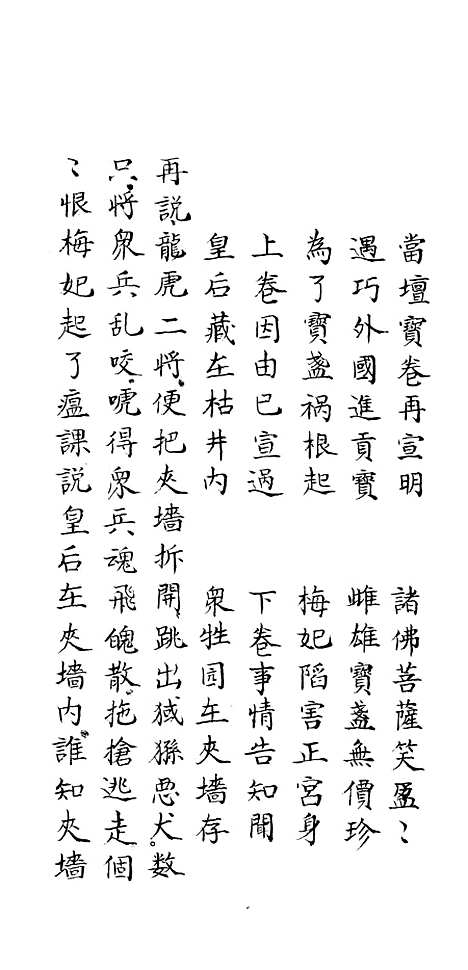 當壇寳卷再宣明　諸佛菩薩笑盈〻
遇巧外國進貢寳　雌雄寳盞無價珍
為了寳盞禍根起　梅妃陷害正宮身
上卷因由已宣過　下卷事情告知聞
皇后藏在枯井内　衆牲囥在夾墻存
再説、龍虎二將、便把夾墻拆開、跳出㺀猻惡犬。数
只、將衆兵乱咬、唬得衆兵魂飛魄散、拖搶逃走個
〻恨梅妃起了瘟課説皇后在夾墻内、誰知夾墻